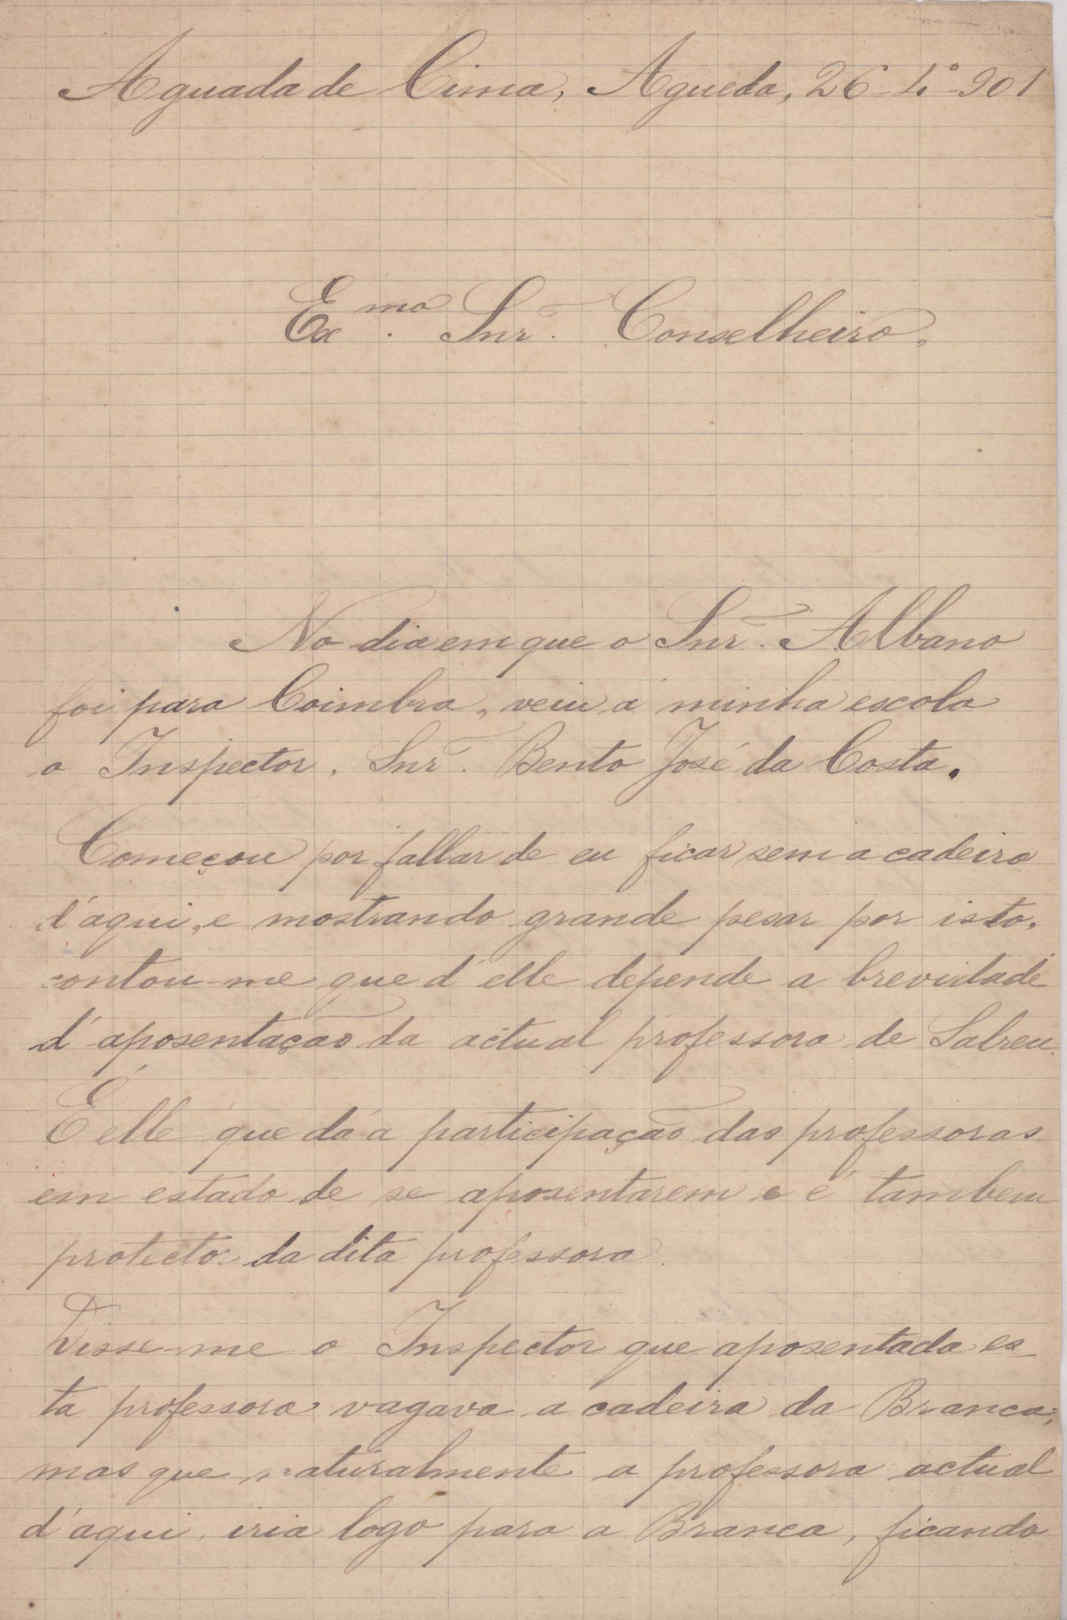 Aguada de Cima, Agueda, 26-4º-901
Exmo. Snr. Conselheiro.
No dia em que o Snr. Albano
foi para Coimbra, veiu á minha escola
o Inspector, Snr. Bento José da Costa.
Começou por fallar de eu ficar sem a cadeira
d'aqui, e mostrando grande pesar por isto,
contou-me que d'elle depende a brevidade
d'aposentação da actual professora de Salreu.
É elle que dá a participação das professoras
em estado de se aposentarem e é tambem
protector da dita professora.
Disse-me o Inspector que aposentada es-
ta professora vagava a cadeira da Branca;
mas que naturalmente a professora actual
d'aqui, iria logo para a Branca, ficando